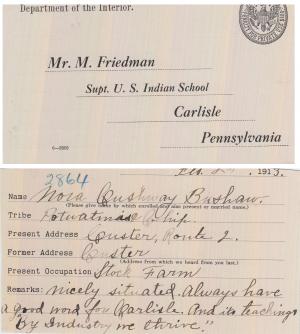 Department of the Interior.
Mr. M. Friedman
Supt. U. S. Indian School
Carlisle
Pennsylvania
2864
1913.
Name Nora Cushway Bushaw.
(Please give name by which enrolled and also present or married name.)
Tribe
Present Address Custer, Route 2.
Former Address Custer
(Address from which we heard from you last.)
Present Occupation Stock Farm
Remarks: nicely situated. Always have
a good word for Carlisle. And its teachings
"By Industry we thrive."